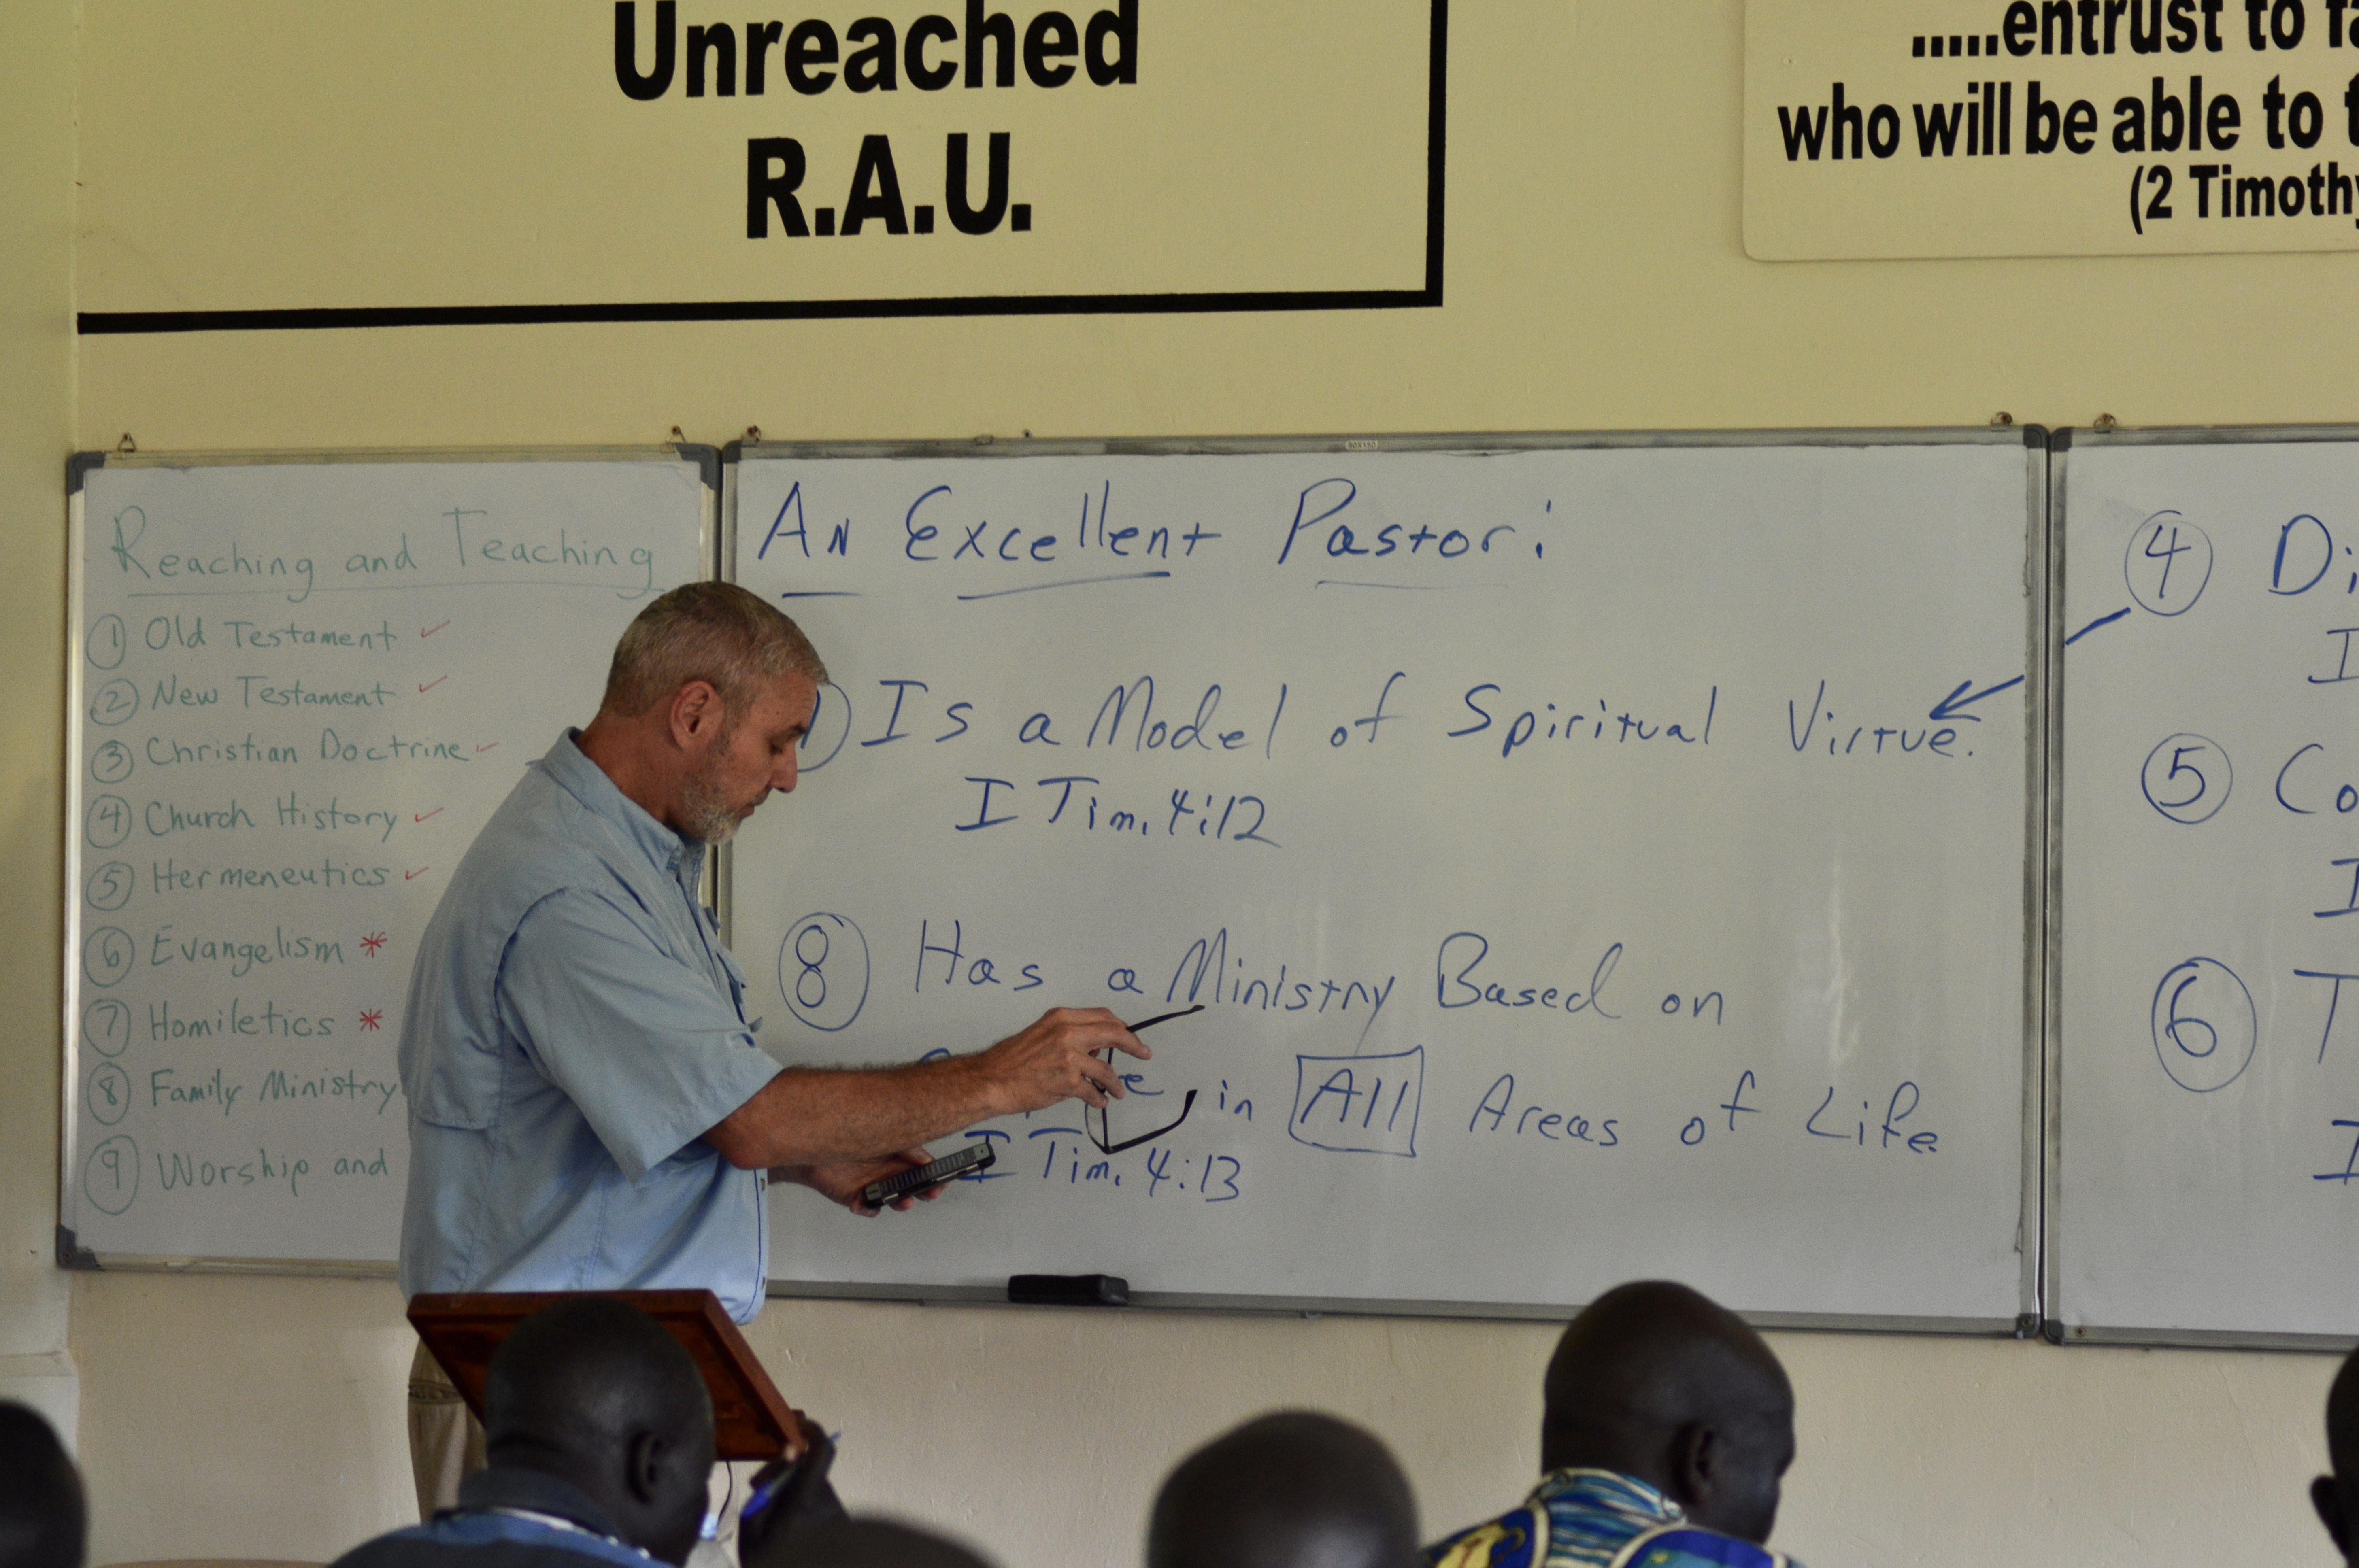 Unreached
R.A.U.
.....entrust to
who will be able to
(2 Timothy
Reaching and Teaching
1 Old Testament ✓
2 New Testament ✓
3 Christian Doctrine ✓
4 Church History ✓
5 Hermeneutics ✓
6 Evangelism *
7 Homiletics *
8 Family Ministry
9 Worship and
An Excellent Pastor:
1) Is a Model of Spiritual Virtue.
I Tim. 4:12
8 Has a Ministry Based on
in All Areas of Life.
I Tim. 4:13
4 Di
I
5 Co
I
6 T
I